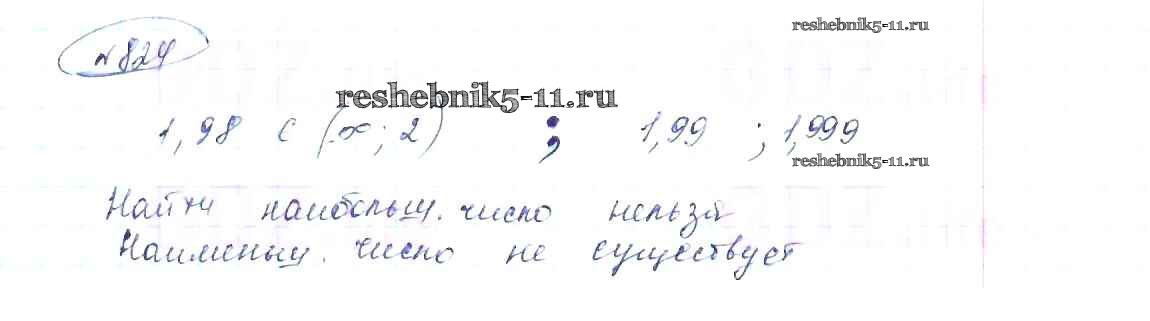 reshebnik5-11.ru
№824
reshebnik5-11.ru
1,98 ∈ (-∞; 2) ; 1,99 ; 1,999
reshebnik5-11.ru
Найти наибольш. число нельзя
Наименьш. число не существует